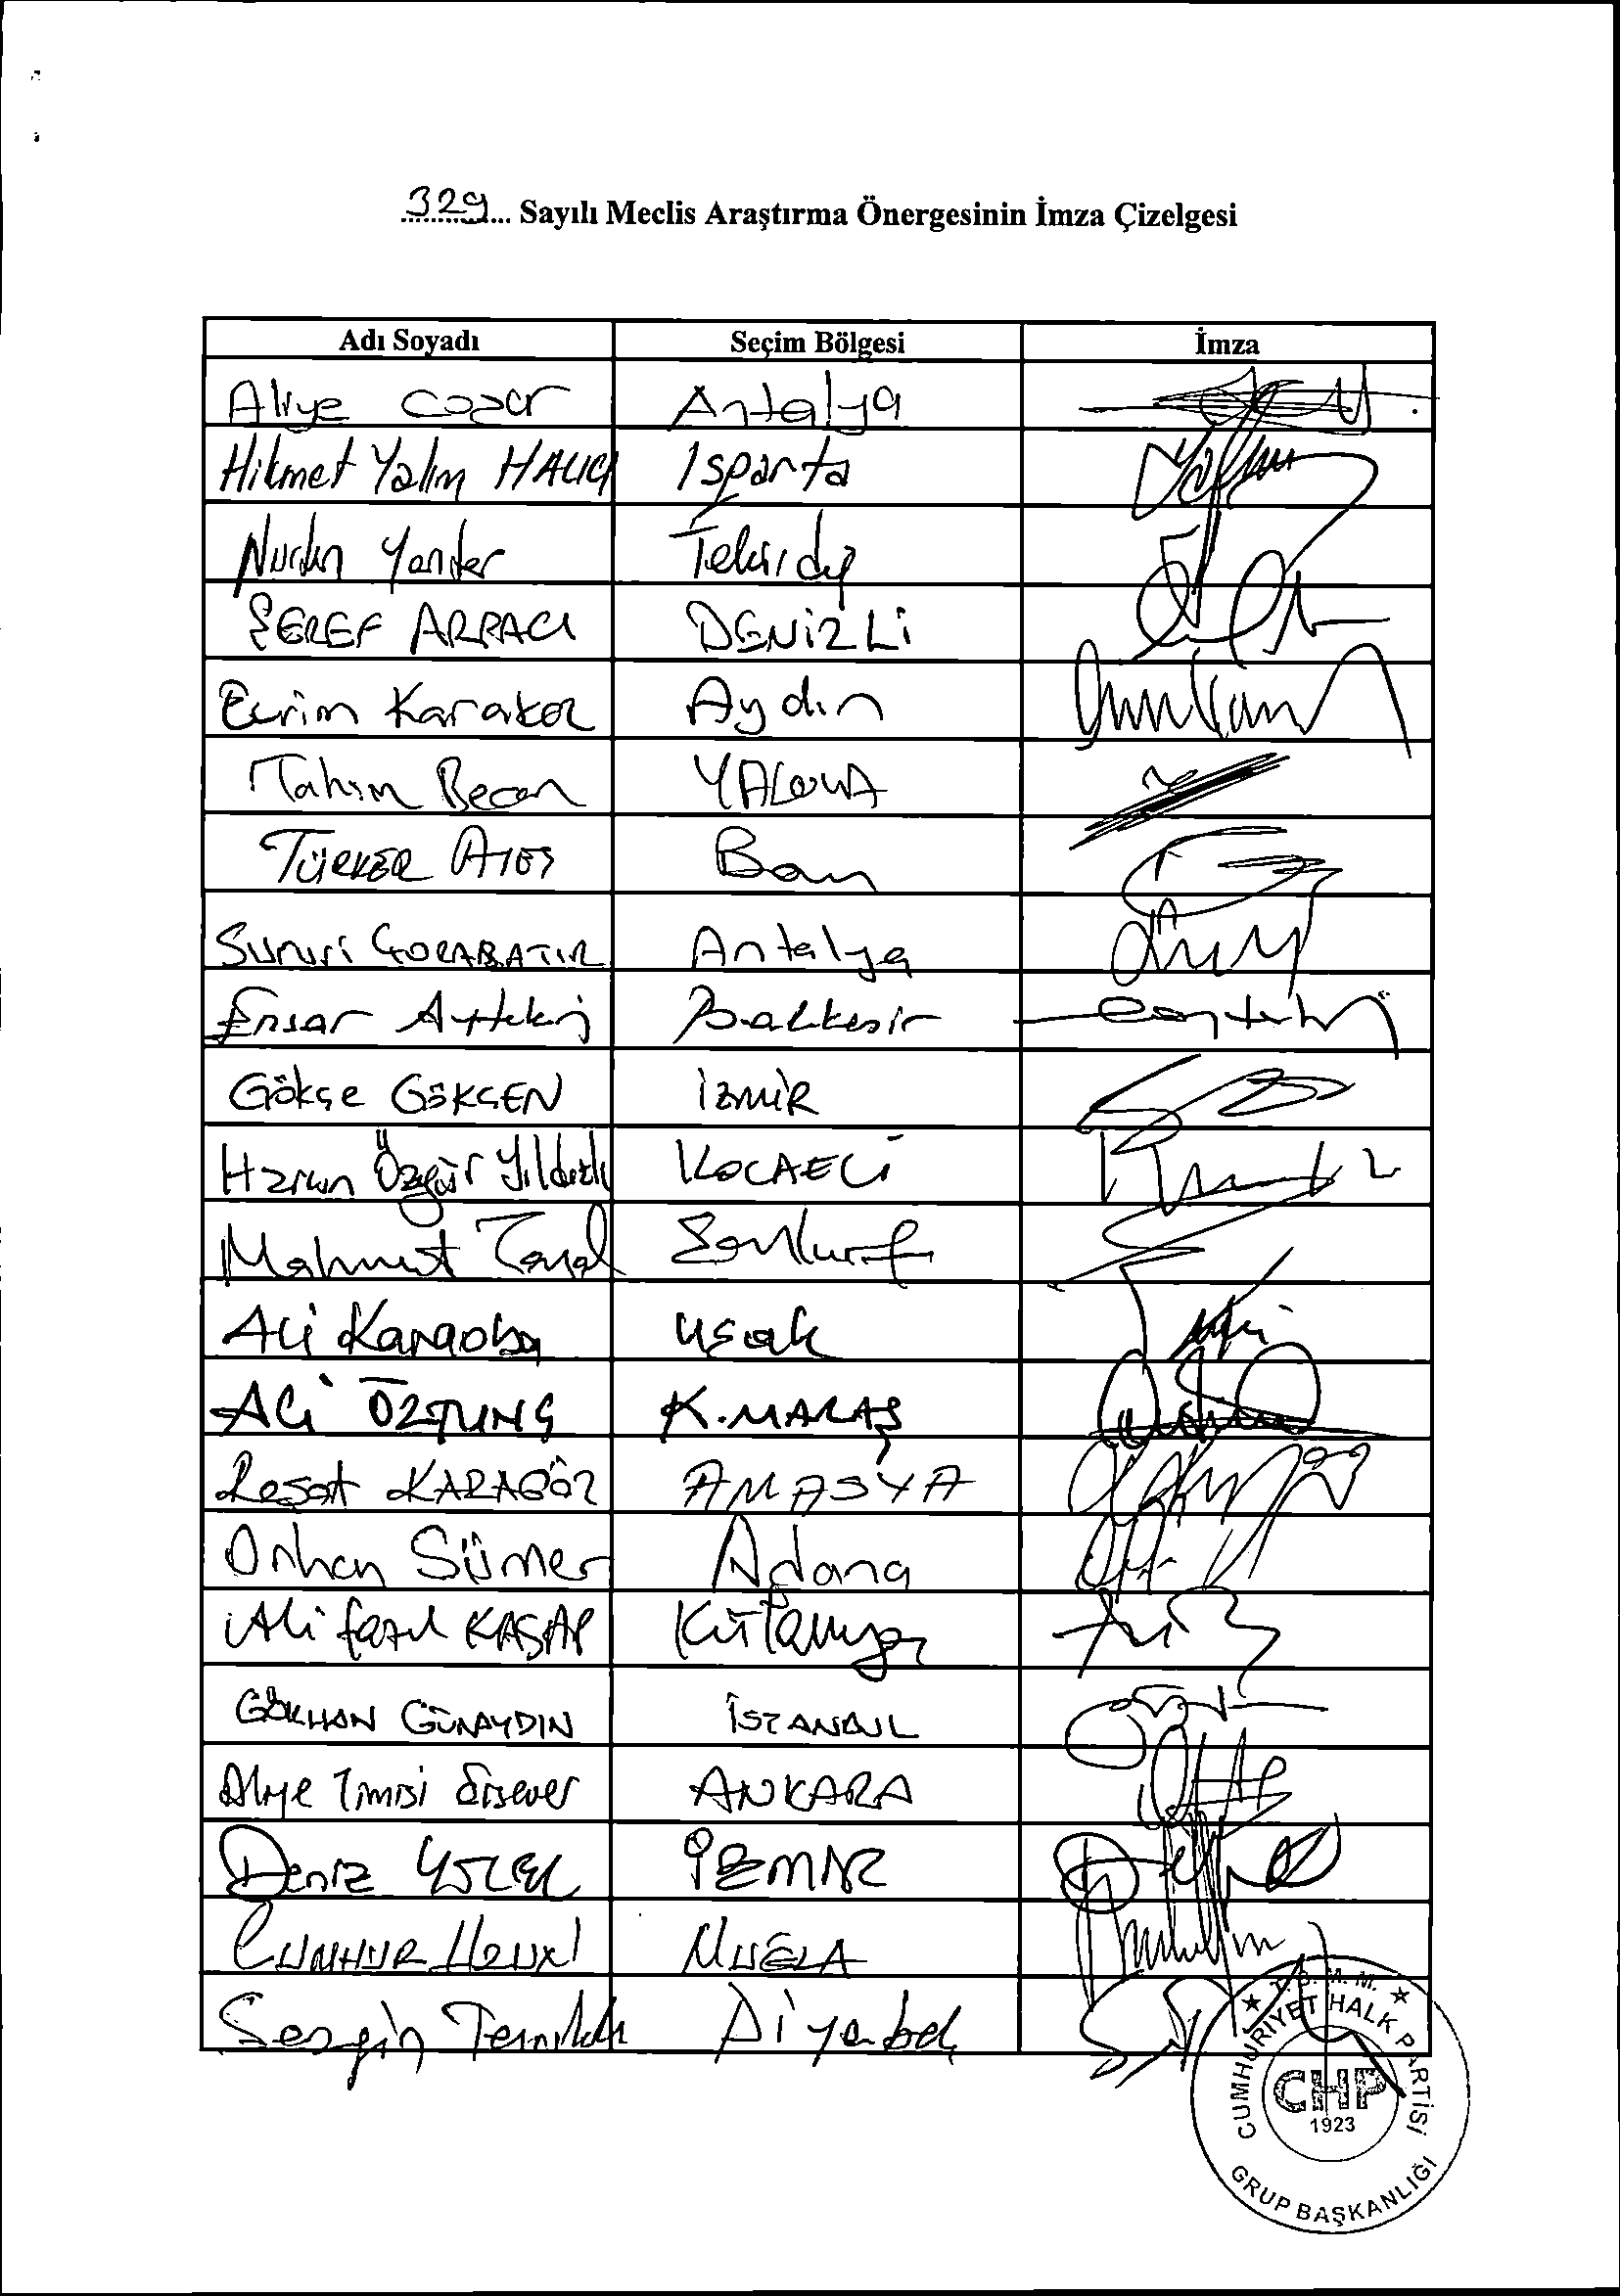 329 Sayılı Meclis Araştırma Önergesinin İmza Çizelgesi
Adı Soyadı Seçim Bölgesi İmza
Aliye Coşar Antalya
Hikmet Yalım HALICI Isparta
Nurten Yontar Tekirdağ
ŞEREF ARPACI DENİZLİ
Evrim Karakoz Aydın
Tahsin Becan YALOVA
TÜRKER ATEŞ Bolu
Sururi ÇORABATIR Antalya
Ensar Aytekin Balıkesir
Gökçe GÖKÇEN İZMİR
Harun Özgür Yıldızlı KOCAELİ
Mahmut Tanal Şanlıurfa
Ali Karaoba Uşak
ALİ ÖZTUNÇ K.MARAŞ
Reşat KARAGÖZ AMASYA
Orhan Sümer Adana
Ali Fazıl KASAP Kütahya
GÖKHAN GÜNAYDIN İSTANBUL
Aliye Timisi Ersever ANKARA
Deniz YÜCEL İZMİR
CUMHUR UZUN MUĞLA
Sezgin Tanrıkulu Diyarbakır
T.B.M.M.
CUMHURİYET HALK PARTİSİ
CHP
1923
GRUP BAŞKANLIĞI